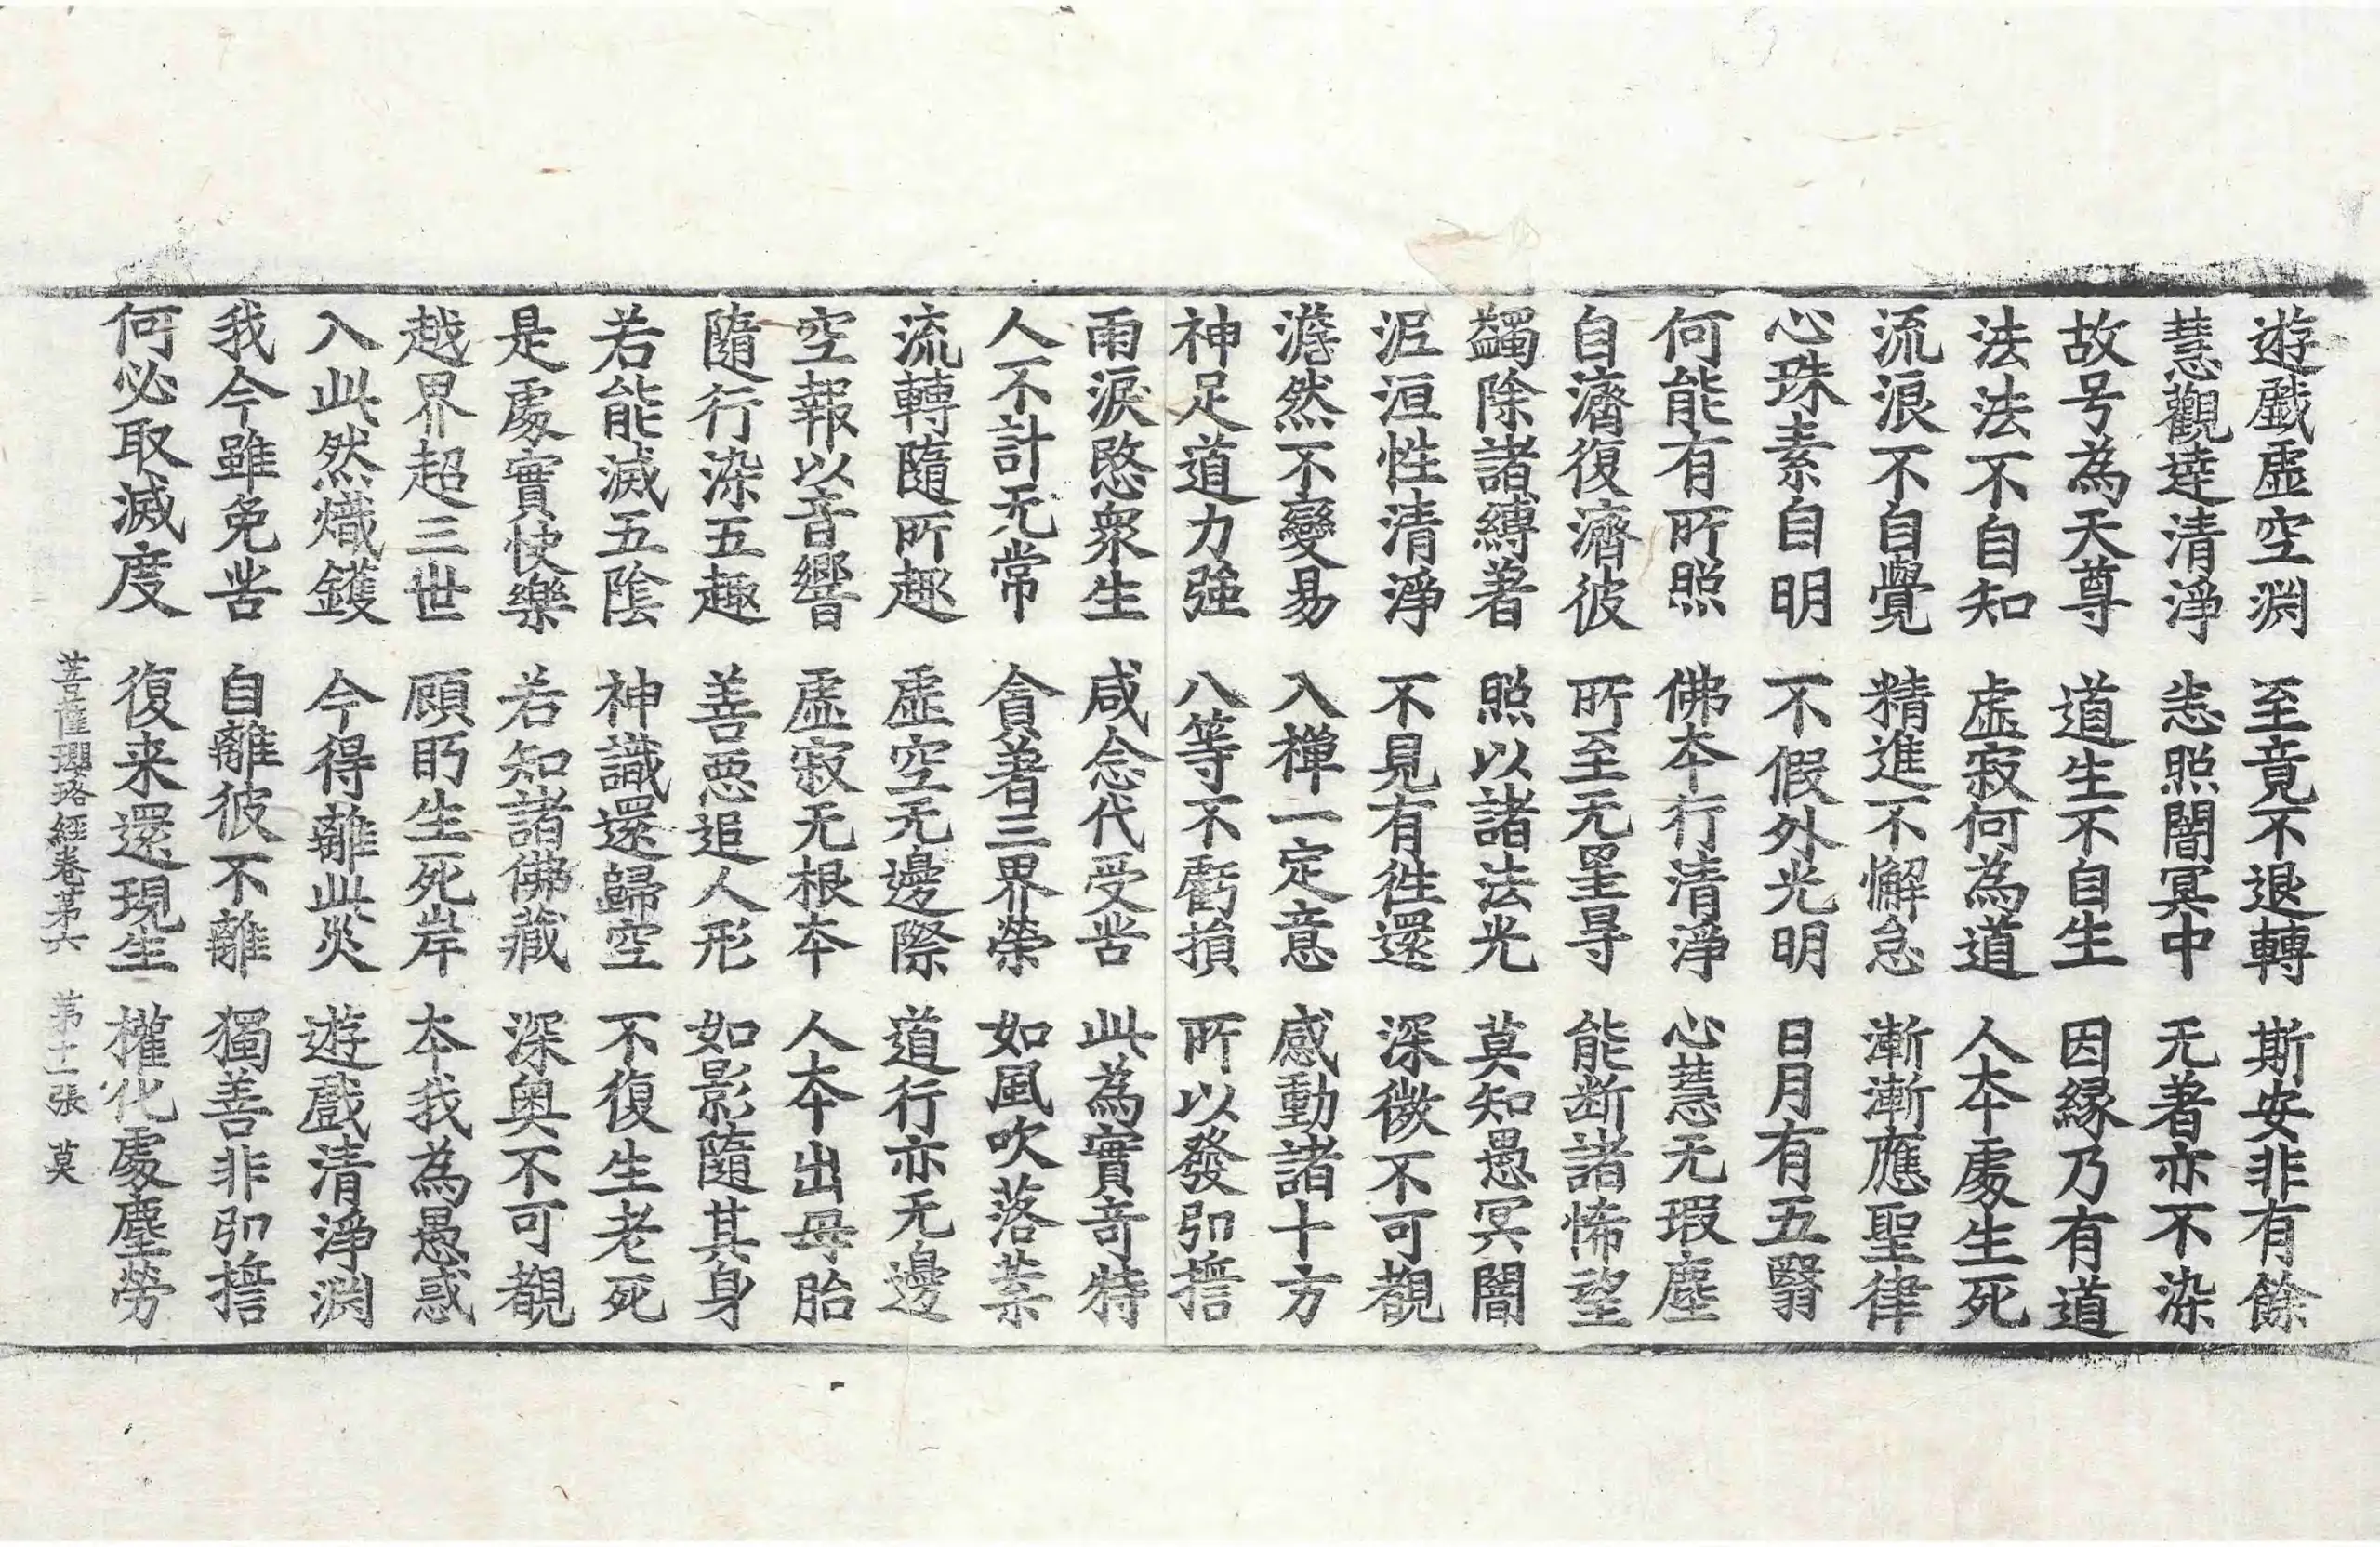 遊戲虛空渊 至竟不退轉 斯安非有餘
慧觀達清淨 悉照闇冥中 无著亦不染
故号為天尊 道生不自生 因緣乃有道
法法不自知 虛寂何為道 人本處生死
流浪不自覺 精進不懈怠 漸漸應聖律
心珠素自明 不假外光明 日月有五翳
何能有所照 佛本行清淨 心慧无瑕塵
自濟復濟彼 所至无罣㝵 能断諸怖望
蠲除諸縛著 照以諸法光 莫知愚冥闇
泥洹性清淨 不見有往還 深微不可覩
澹然不變易 入禪一定意 感動諸十方
神足道力強 八等不虧損 所以發弘誓
雨淚愍衆生 咸念代受苦 此為實奇特
人不計无常 貪著三界榮 如風吹落葉
流轉隨所趣 虛空无邊際 道行亦无邊
空報以音響 虛寂无根本 人本出母胎
隨行染五趣 善惡追人形 如影隨其身
若能滅五陰 神識還歸空 不復生老死
是處實快樂 若知諸佛藏 深奥不可覩
越界超三世 顧眄生死岸 本我為愚惑
入此然熾鑊 今得離此災 遊戲清淨渊
我今雖免苦 自離彼不離 獨善非弘誓
何必取滅度 復来還現生 權化處塵勞
菩薩瓔珞經卷第六 第十二張 莫